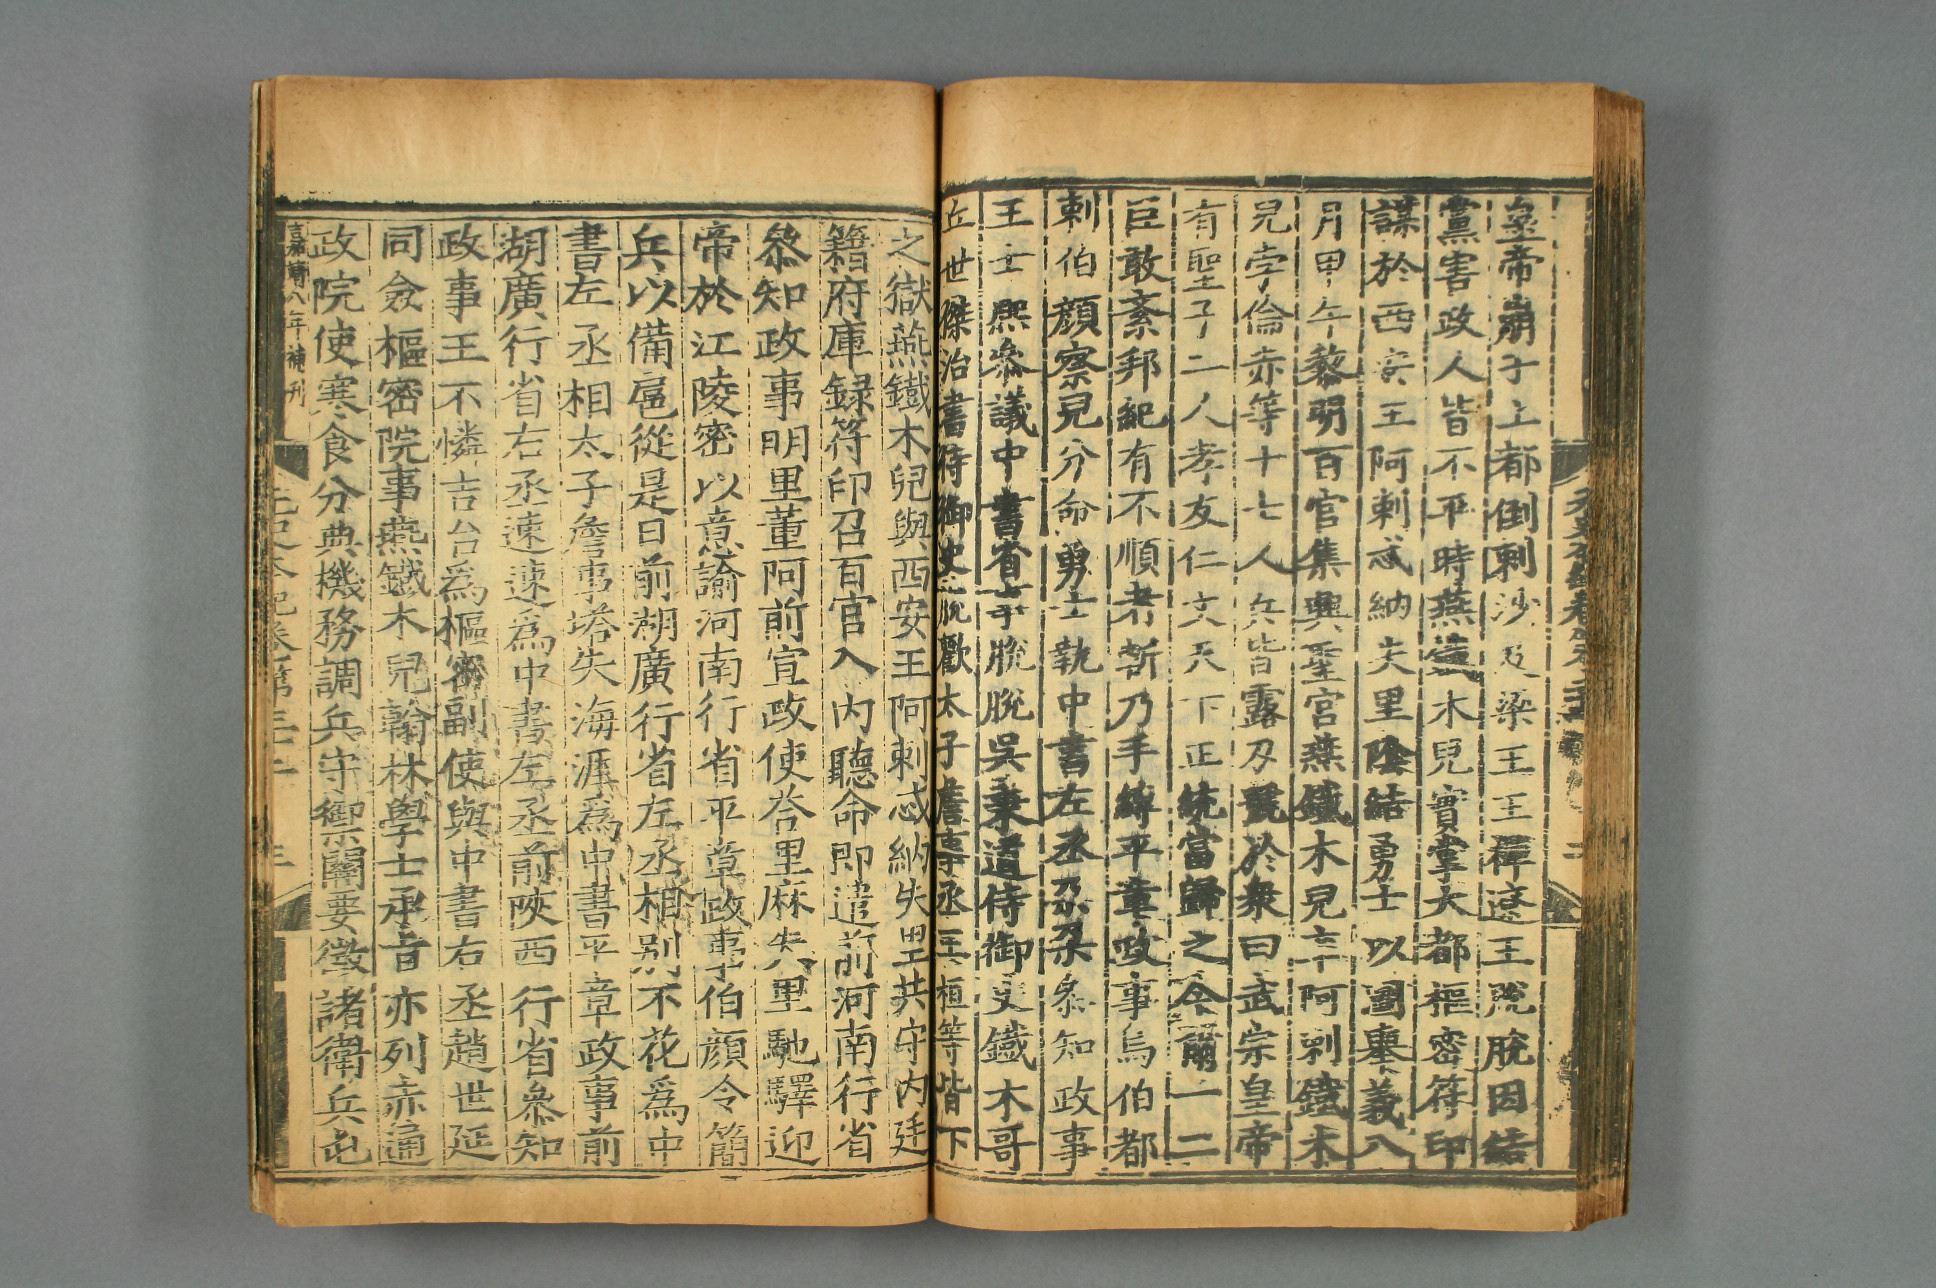 皇帝崩于上都倒剌沙及梁王王禪遼王脫脫因結
黨害政人皆不平時燕鐵木兒實掌大都樞密符印
謀於西安王阿剌忒納失里陰結勇士以圖舉義八
月甲午黎明百官集興聖宮燕鐵木兒率阿剌鐵木
兒孛倫赤等十七人兵皆露刃號於衆曰武宗皇帝
有聖子二人孝友仁文天下正統當歸之今爾一二
臣敢紊邦紀有不順者斬乃手縛平章政事烏伯都
剌伯顏察兒分命勇士執中書左丞朶朶叅知政事
王士熙叅議中書省事脫脫吳秉道侍御史鐵木哥
丘世傑治書侍御史脫歡太子詹事丞王桓等皆下
之獄燕鐵木兒與西安王阿剌忒納失里共守內廷
籍府庫録符印召百官入內聽命即遣前河南行省
叅知政事明里董阿前宣政使荅里麻失里馳驛迎
帝於江陵密以意諭河南行省平章政事伯顏令簡
兵以備扈從是日前湖廣行省左丞相别不花爲中
書左丞相太子詹事塔失海涯爲中書平章政事前
湖廣行省右丞速速爲中書左丞前陝西行省叅知
政事王不憐吉台爲樞密副使與中書右丞趙世延
同僉樞密院事燕鐵木兒翰林學士承旨亦列赤通
政院使寒食分典機務調兵守禦關要徵諸衛兵屯
嘉靖八年補刊
元史本紀卷第三十二
三